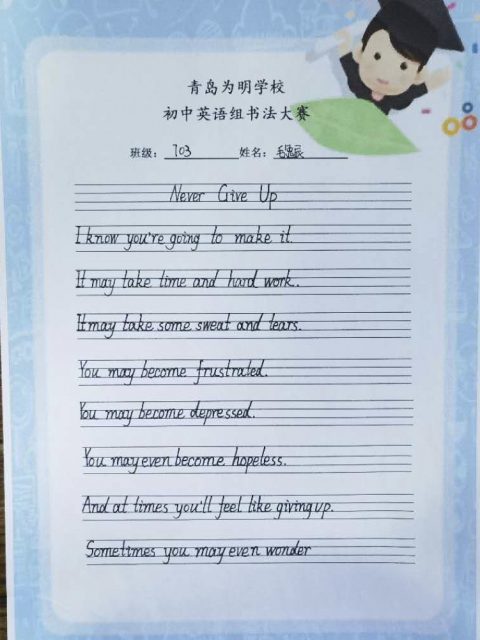 青岛为明学校
初中英语组书法大赛
班级： 703 姓名：
Never Give Up
I know you're going to make it.
It may take time and hard work.
It may take some sweat and tears.
You may become frustrated.
You may become depressed.
You may even become hopeless.
And at times you'll feel like giving up.
Sometimes you may even wonder